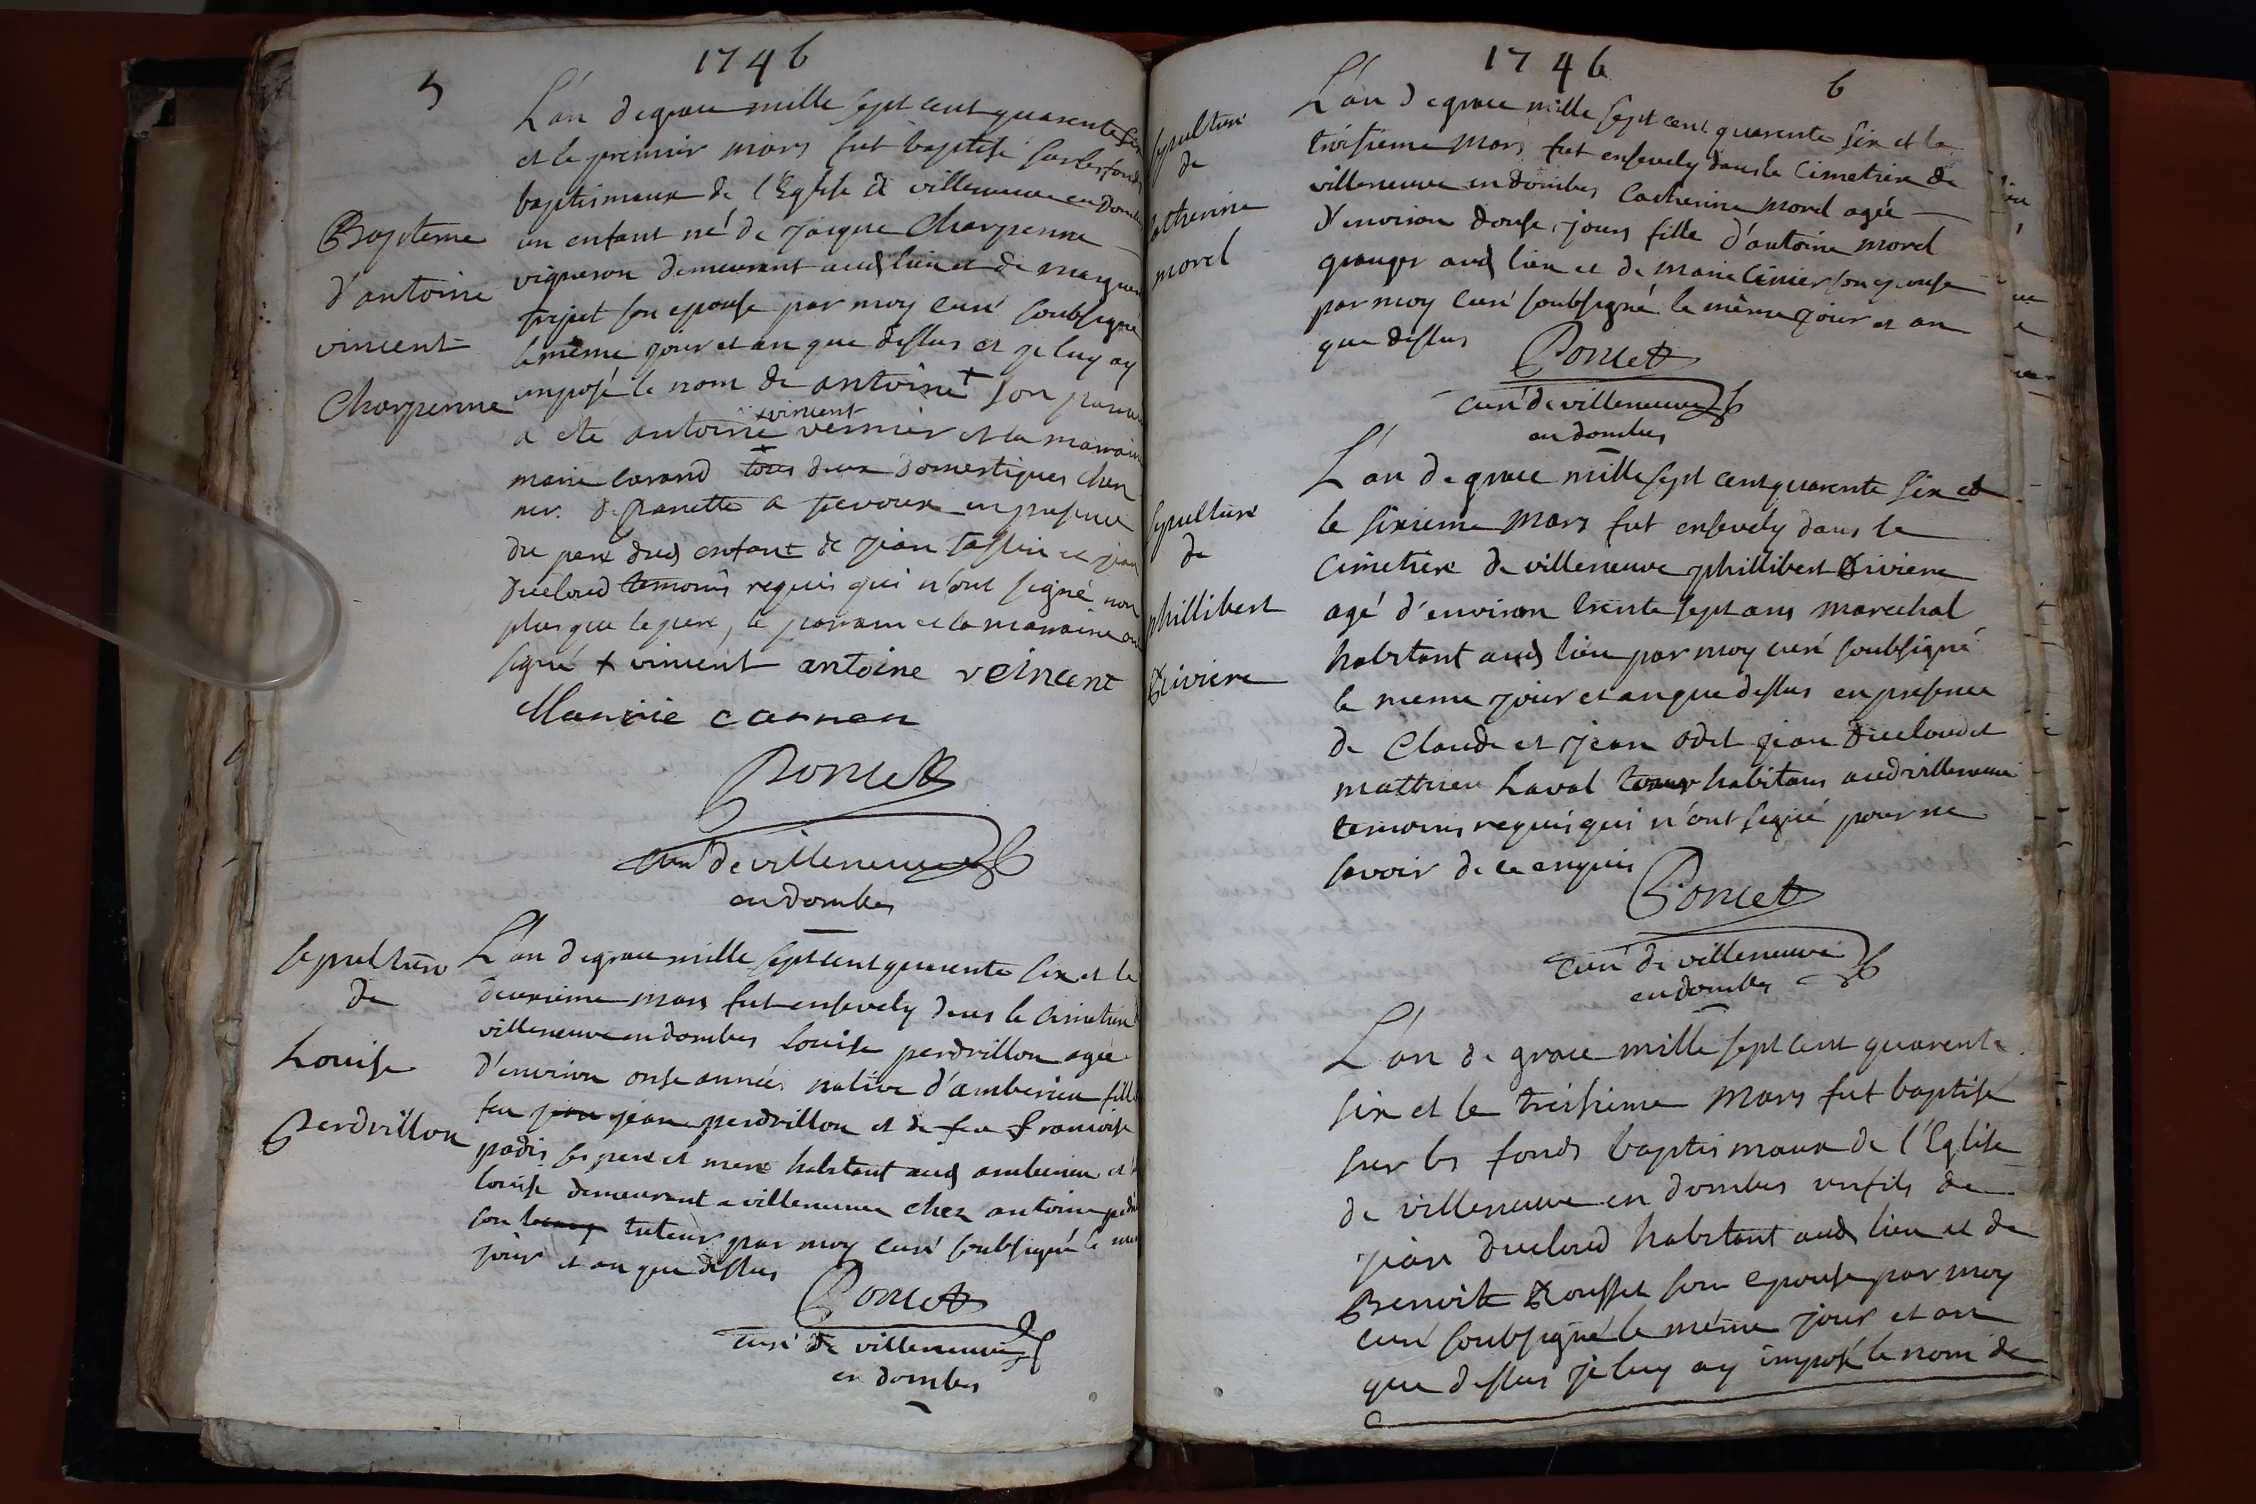 1746
5
L'an de grace mille sept cent quarente six
et le premier mars fut baptisé sur les fonds
baptismaux de l'Eglise de villeneuve en Dombes
Bapteme
d'antoine
vincent
Charpenne
un enfant né de jacque Charpenne
vigneron demeurant aud lieu et de
son epouse par moy curé soubsigné
le même jour et an que dessus et je luy ay
imposé le nom de antoine + son parain
a ete antoine + vincent vernier et la maraine
marie carand tous deux domestiques chez
mr. de a trevoux en presence
du pere dud enfant de jean et jean
ducloud temoins requis qui n'ont signé non
plus que le pere, le parrain et la marraine ont
signé + vincent antoine veincent
Marie
Poncet
curé de villeneuve
en dombes
sepulture
de
Louise
Perdrillon
L'an de grace mille sept cent quarente six et le
deuxieme mars fut ensevely dans le cimetiere
villeneuve en dombes Louise perdrillon agée
d'environ onse années native d'amberieu fille
feu jean jean perdrillon et de feu francoise
ses pere et mere habitant aud amberieu et
louise demeurant a villeneuve chez antoine
son tuteur par moy curé soubsigné le même
jour et an que dessus
Poncet
curé de villeneuve
en dombes
1746
6
sepulture
de
catherine
morel
L'an de grace mille sept cent quarente six et le
troisieme mars fut ensevely dans le cimetiere de
villeneuve en dombes Catherine morel agée
d'environ douse jours fille d'antoine morel
granger aud lieu et de marie Cinier son epouse
par moy curé soubsigné le même jour et an
que dessus
Poncet
curé de villeneuve
en dombes
sepulture
de
phillibert
Riviere
L'an de grace mille sept cent quarente six et
le sixieme mars fut ensevely dans le
cimetiere de villeneuve phillibert Riviere
agé d'environ trente sept ans marechal
habitant aud lieu par moy curé soubsigné
le meme jour et an que dessus en presence
de Claude et jean odet jean Ducloud et
matthieu Laval tous habitans aud villeneuve
temoins requis qui n'ont signé pour ne
savoir de ce enquis
Poncet
curé de villeneuve
en dombes
L'an de grace mille sept cent quarente
six et le treisieme mars fut baptisé
sur les fonds baptismaux de l'Eglise
de villeneuve en dombes un fils de
jean ducloud habitant aud lieu et de
Benoite Rousset son epouse par moy
curé soubsigné le même jour et an
que dessus je luy ay imposé le nom de